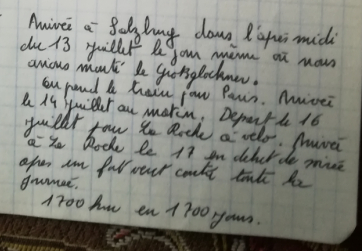 Arrivée à Salzburg dans l'après midi
du 13 juillet le jour même où nous
avons monté le Großglockner.
on prend le train pour Paris. Arrivée
le 14 juillet au matin. Depart le 16
juillet pour La Roche à vélo. Arrivée
à La Roche le 17 en début de soirée
apres un fort vent contre toute la
journée.
1700 km en 1700 jours.